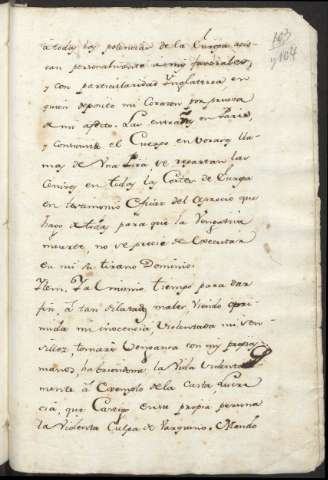 103
y 104
a todas las potencias de la Europa asis-
tan personalmente a mis funerales,
y con particularidad Inglaterra en
quien deposito mi Corazon por prueva
de mi afecto. Las entrañas en Paris,
y convierta el Cuerpo en voraces lla-
mas de una Pira se repartan las
Cenizas en todas las Cortes de Europa
en testimonio del aprecio que
hago a todas, para que la Vengativa
muerte, no se precie de Executar
en mi su tirano Dominio.
Item. Y al mismo tiempo para dar
fin, á tan dilatados males, viendo opri-
mida mi inocencia, violentada mi sen-
cillez, tomaré Venganza con mis propias
manos, haciendome la Vida violenta-
mente á Exemplo de la Casta Lucre-
cia, que Castigo en su propia persona
la violenta Culpa de Tarquino. Mando